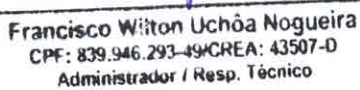 Francisco Wilton Uchôa Nogueira
CPF: 839.946.293-49/CREA: 43507-D
Administrador / Resp. Técnico